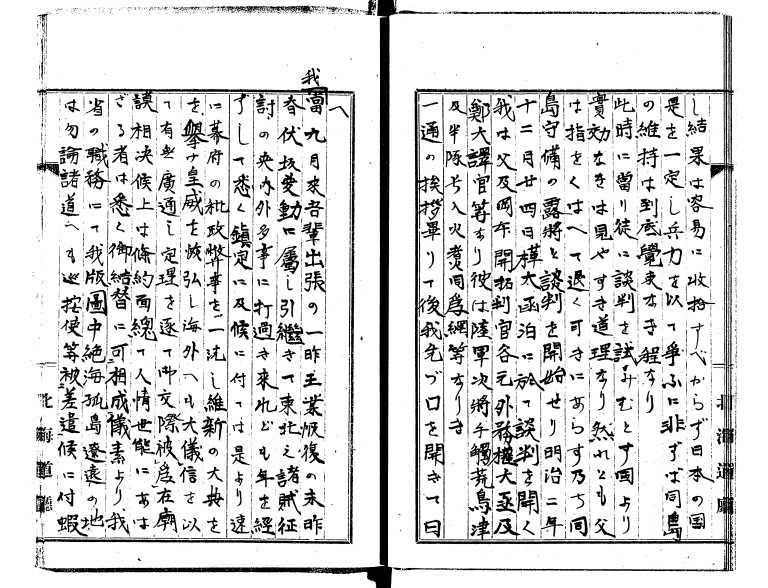 し結果は容易に收拾すべからず日本の国
是を一定し兵力を以て爭ふに非ずば同島
の維持は到底覺束なき程なり
此時に當り徒に談判を試みむとす固より
實効なきは見やすき道理なり然れとも父
は指をくはへて退く可きにあらす乃ち同
島守備の露將と談判を開始せり明治二年
十二月廿四日樺太函泊に於て談判を開く
我は父及岡本開拓判官各元外務權大丞及
鄭大譯官等なり彼は陸軍次將
及半隊号入火
一通の挨拶畢りて後我先づ口を開きて曰
北海道廳
我當九月來吾輩出張の一昨王業恢復の末昨
春伏坂変動に属し引繼きて東北之諸賊征
討の央内外多事に打過き来れども年を經
ずして悉く鎮定に及候に付ては是より速
に幕府の秕政弊事を一洗し維新の大典を
を擧け皇威を恢弘し海外へも大儀信を以
て有無廣通し定理を逐て御交際被爲在廟
謨相决候上は條約面總て人情世態にあは
ざる者は悉く御結替に可相成儀素より我
省の職務にて我版圖中絶海孤島遼遠の地
は勿論諸道へも巡按使等被差遣候に付蝦
北海道廳